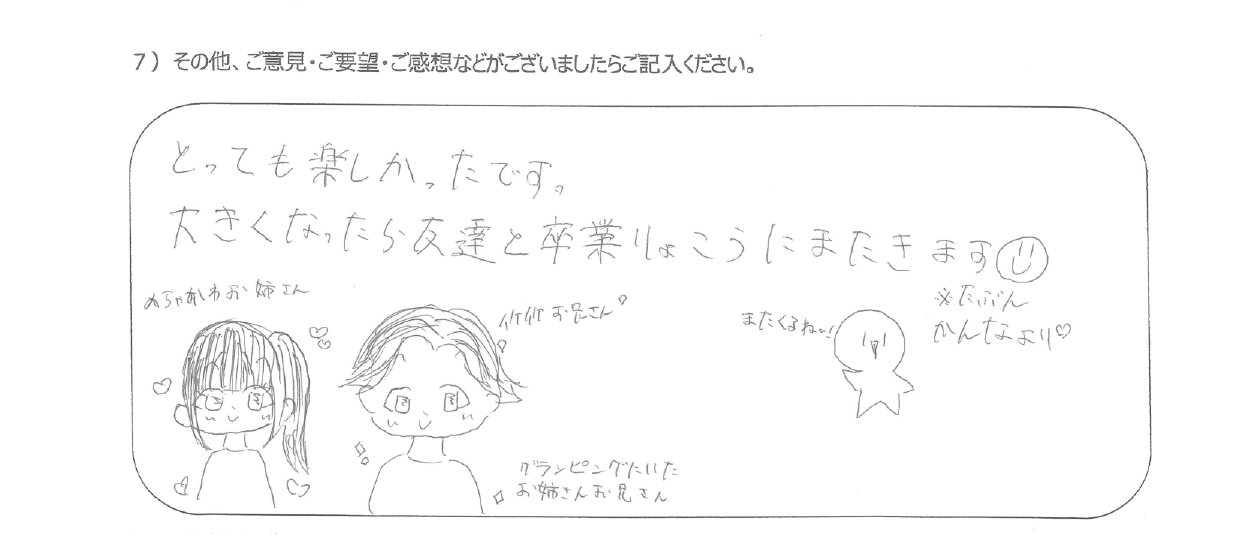 7）その他、ご意見・ご要望・ご感想などがございましたらご記入ください。
とっても楽しかったです。
大きくなったら友達と卒業りょこうにまたきます
※たぶん
かんなより♡
めちゃかわお姉さん
イケイケお兄さん
またくるねー!
グランピングにいた
お姉さんお兄さん